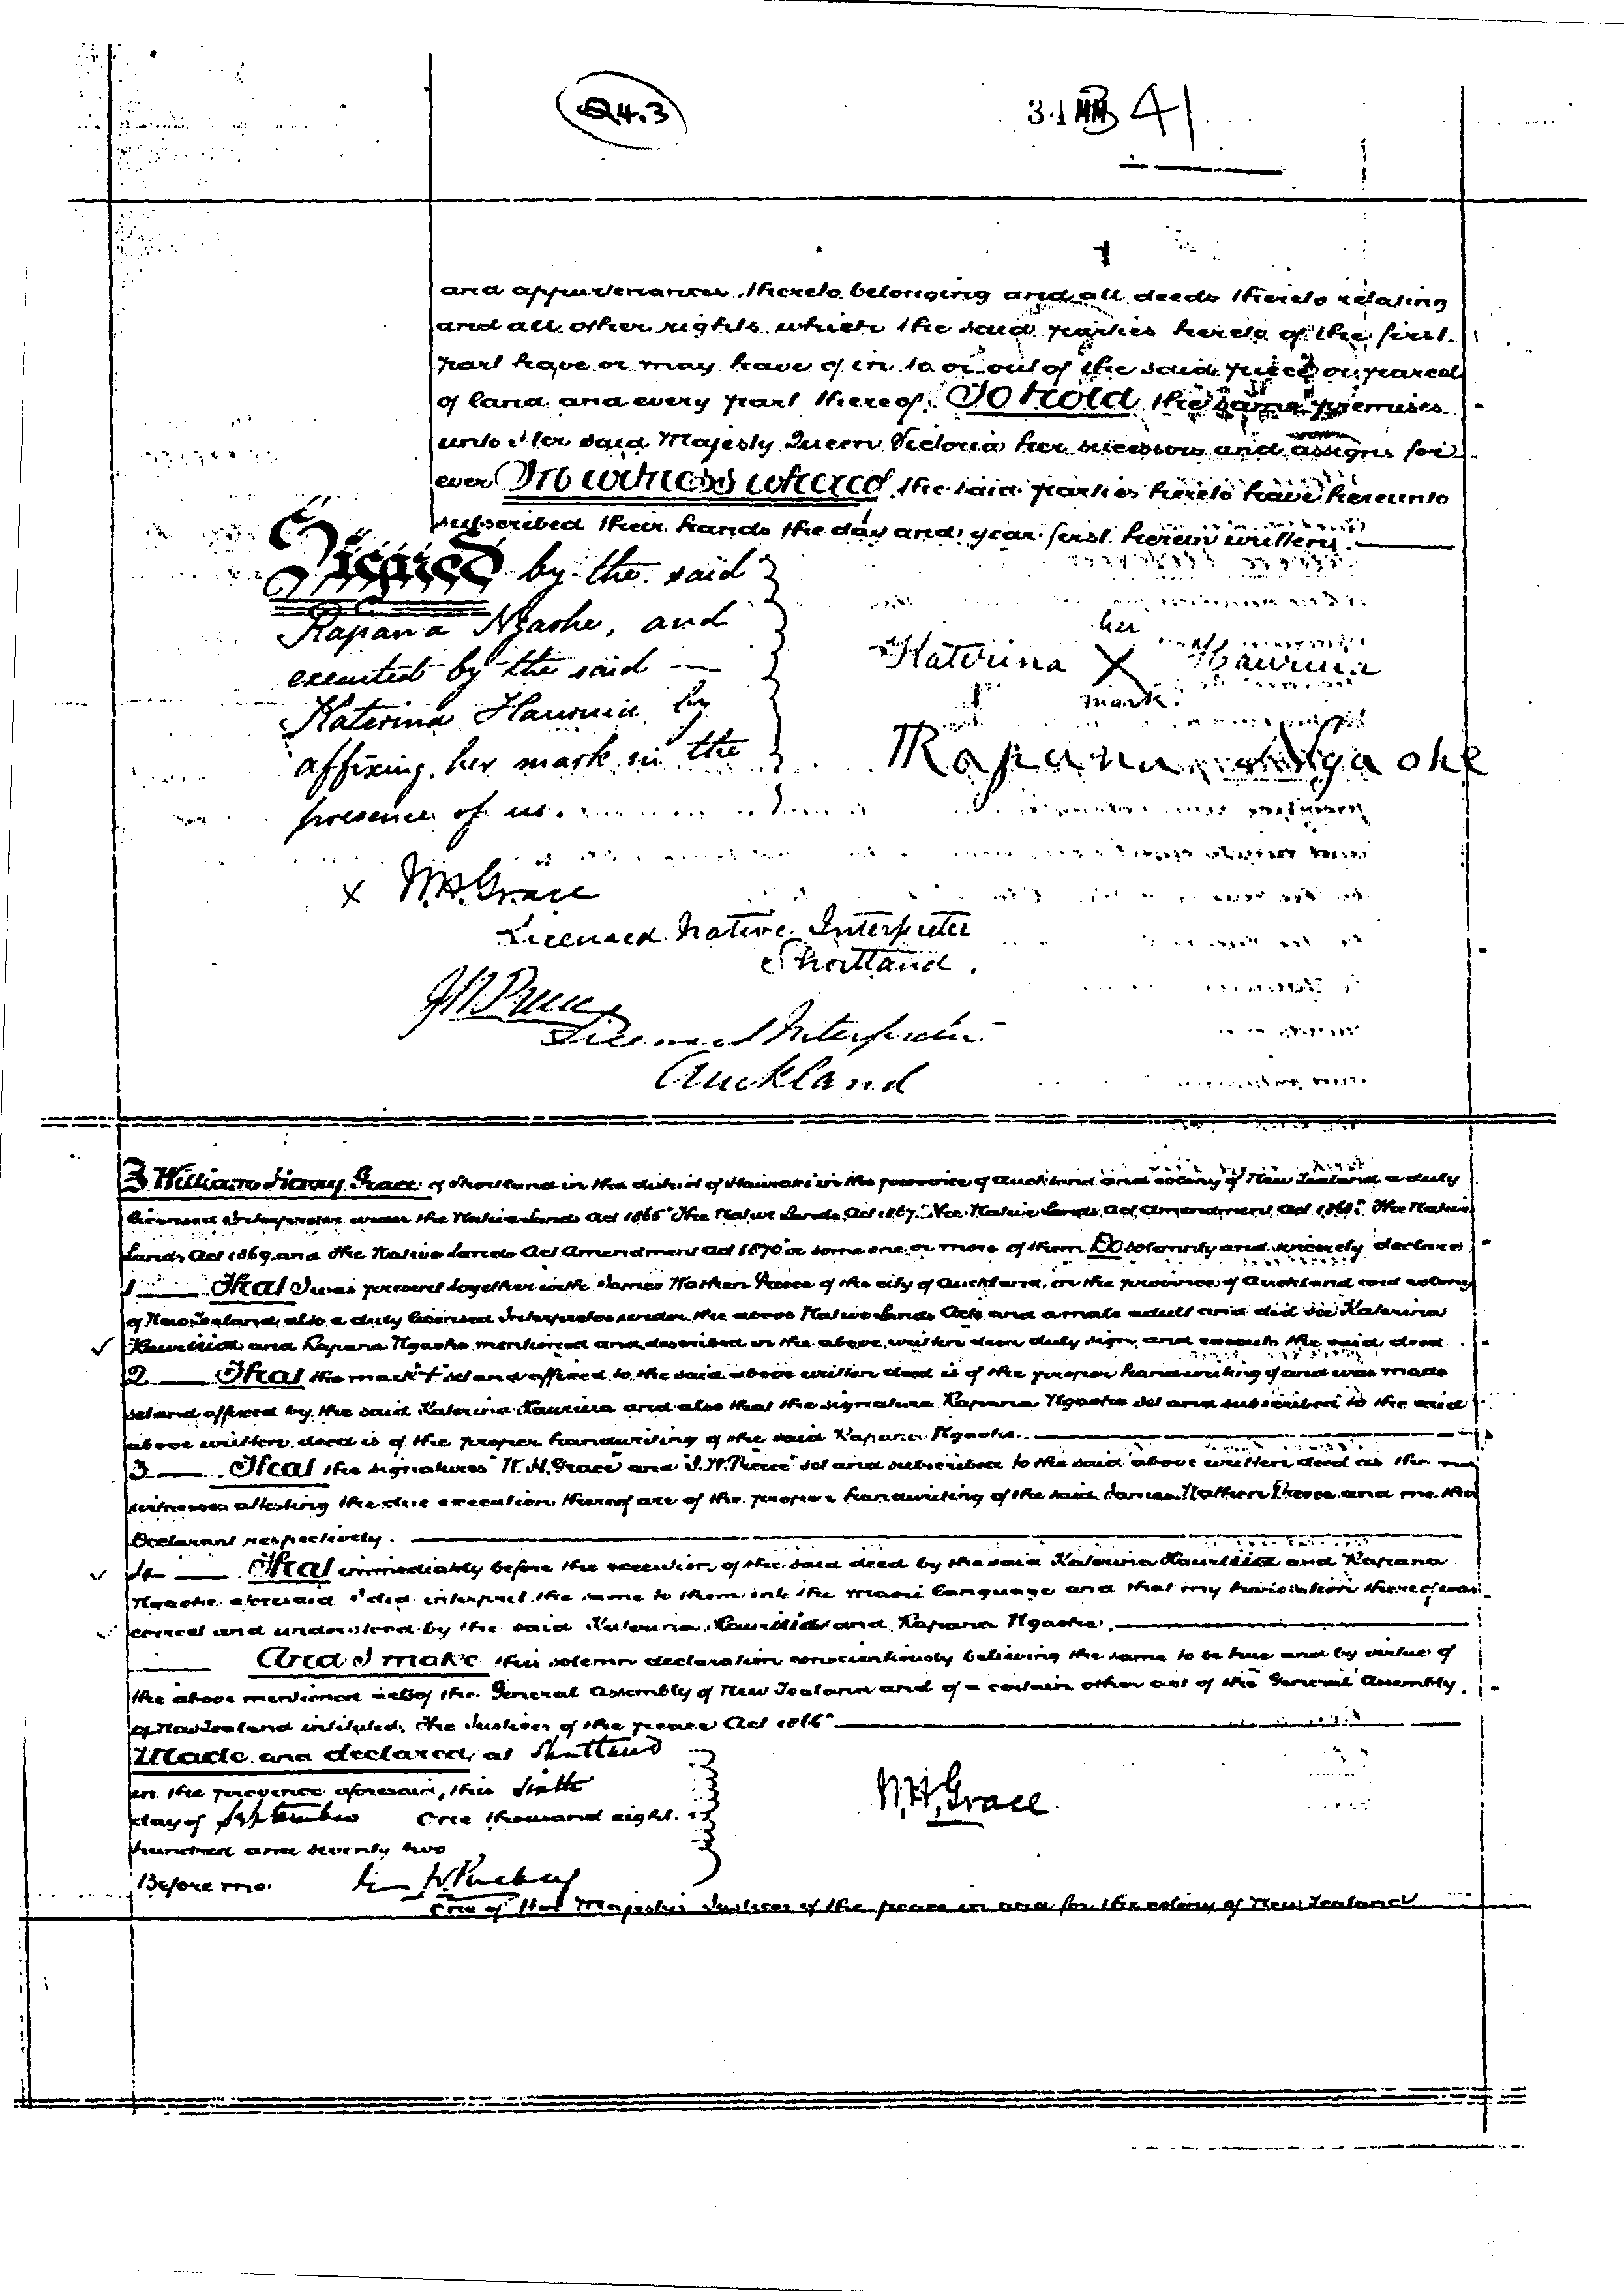 Q4.3
41
and appurtenances thereto belonging and all deeds thereto relating
and all other rights which the said parties hereto of the first
part have or may have of in to or out of the said piece or parcel
of land and every part thereof. To hold the same premises
unto Her said Majesty Queen Victoria her successors and assigns for
ever In witness whereof the said parties hereto have hereunto
subscribed their hands the day and year first herein written.
Signed by the said
Rapana Ngaohe, and
executed by the said
Katerina Hauruia by
affixing her mark in the
presence of us.
her
Katerina X Hauruia
mark.
Rapana Ngaohe
x W.H. Grace
Licensed Native Interpreter
Shortland.
Licensed Interpreter
Auckland
I William Henry Grace of Shortland in the district of Hauraki in the province of Auckland and colony of New Zealand a duly
licensed Interpreter under the Native Lands Act 1865 "The Native Lands Act 1867" "The Native Lands Act Amendment Act 1868" The Native
Lands Act 1869 and the Native Lands Act Amendment Act 1870 or some one or more of them Do solemnly and sincerely declare
1 That I was present together with James Nathan Preece of the city of Auckland in the province of Auckland and colony
of New Zealand also a duly licensed Interpreter under the above Native Lands Acts and a male adult and did see Katerina
Hauruia and Rapana Ngaohe mentioned and described in the above written deed duly sign and execute the said deed
2 That the mark "+" set and affixed to the said above written deed is of the proper handwriting of and was made
set and affixed by the said Katerina Hauruia and also that the signature Rapana Ngaohe set and subscribed to the said
above written deed is of the proper handwriting of the said Rapana Ngaohe.
3 That the signatures "W. H. Grace" and "J. N. Preece" set and subscribed to the said above written deed as the
witnesses attesting the due execution thereof are of the proper handwriting of the said James Nathan Preece and me the
Declarant respectively.
4 That immediately before the execution of the said deed by the said Katerina Hauruia and Rapana
Ngaohe aforesaid I did interpret the same to them into the Maori language and that my translation thereof was
correct and understood by the said Katerina Hauruia and Rapana Ngaohe.
And I make this solemn declaration conscientiously believing the same to be true and by virtue of
the above mentioned acts of the General Assembly of New Zealand and of a certain other act of the General Assembly
of New Zealand intituled, The Justices of the peace Act 1866"
Made and declared at Shortland
in the province aforesaid, this sixth
day of September One thousand eight
hundred and seventy two
W.H. Grace
Before me.
One of Her Majesty's Justices of the peace in and for the colony of New Zealand